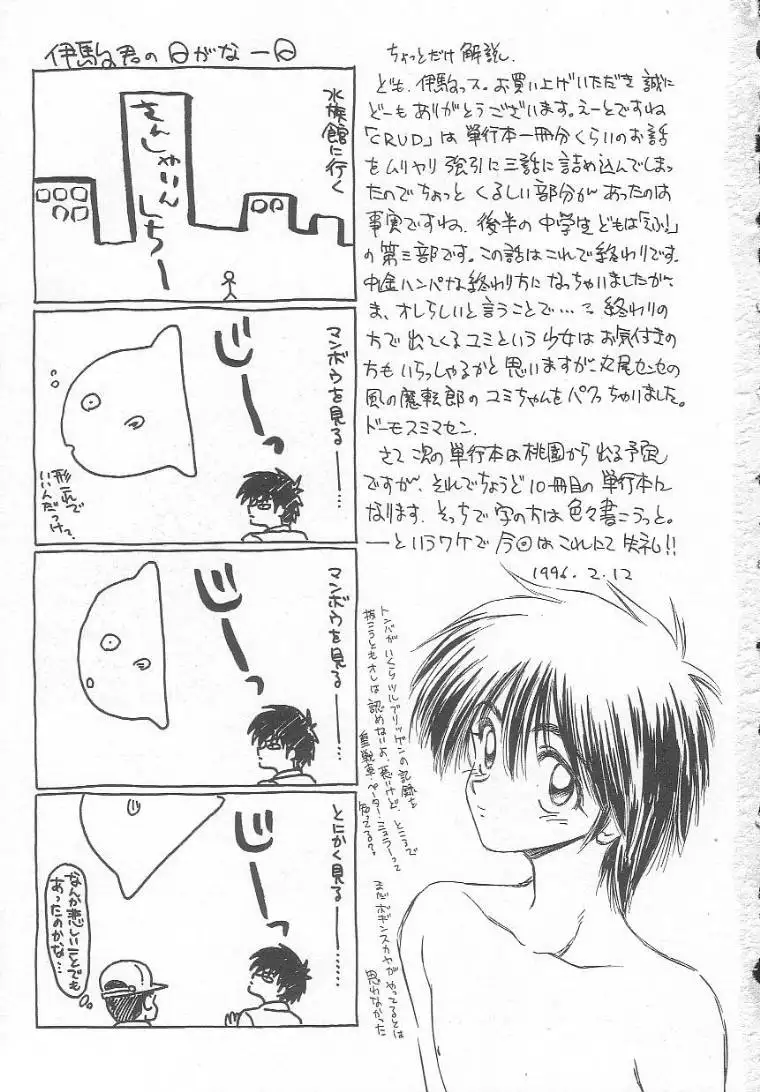 伊駒君の日がな一日
水族館に行く
さんしゃいんしちー
マンボウを見る———…
じーーっ
形これで
いいんだっけ?
マンボウを見る———…
じーーっ
とにかく見る———…
じーーっ
なんか悲しいことでも
あったのかな…
ちょっとだけ解説。
ども、伊駒っス。お買い上げいただき誠に
どーもありがとうございます。えーとですね
「CRUD」は単行本一冊分くらいのお話
をムリヤリ強引に三話に詰め込んでしまっ
たのでちょっとくるしい部分があったのは
事実ですね。後半の中学生どもは
の第三部です。この話はこれで終わりです。
中途ハンパな終わり方になっちゃいましたが、
ま、オレらしいと言うことで…。終わりの
方で出てくるユミという少女はお気付きの
方もいらっしゃるかと思いますが、丸尾センセの
風の魔転郎のユミちゃんをパクっちゃいました。
ドーモスミマセン。
さて次の単行本は桃園から出る予定
ですが、それでちょうど10冊目の単行本に
なります。そっちで字の方は色々書こうっと。
——というワケで今回はこれにて失礼!!
1996.2.12
トンバがいくらツルブリッゲンの記録を
抜こうともオレは認めないよ、悪いけど。ところで
皇戦車ペーター・ミュラーって
知ってる?
まだボギンスカヤがやってるとは
思わなかった